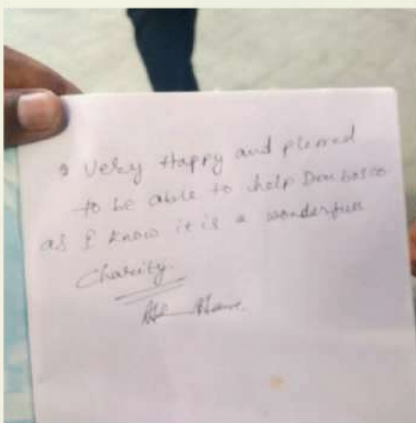 Very Happy and pleased
to be able to help Don bosco
as I know it is a wonderfull
Charity.